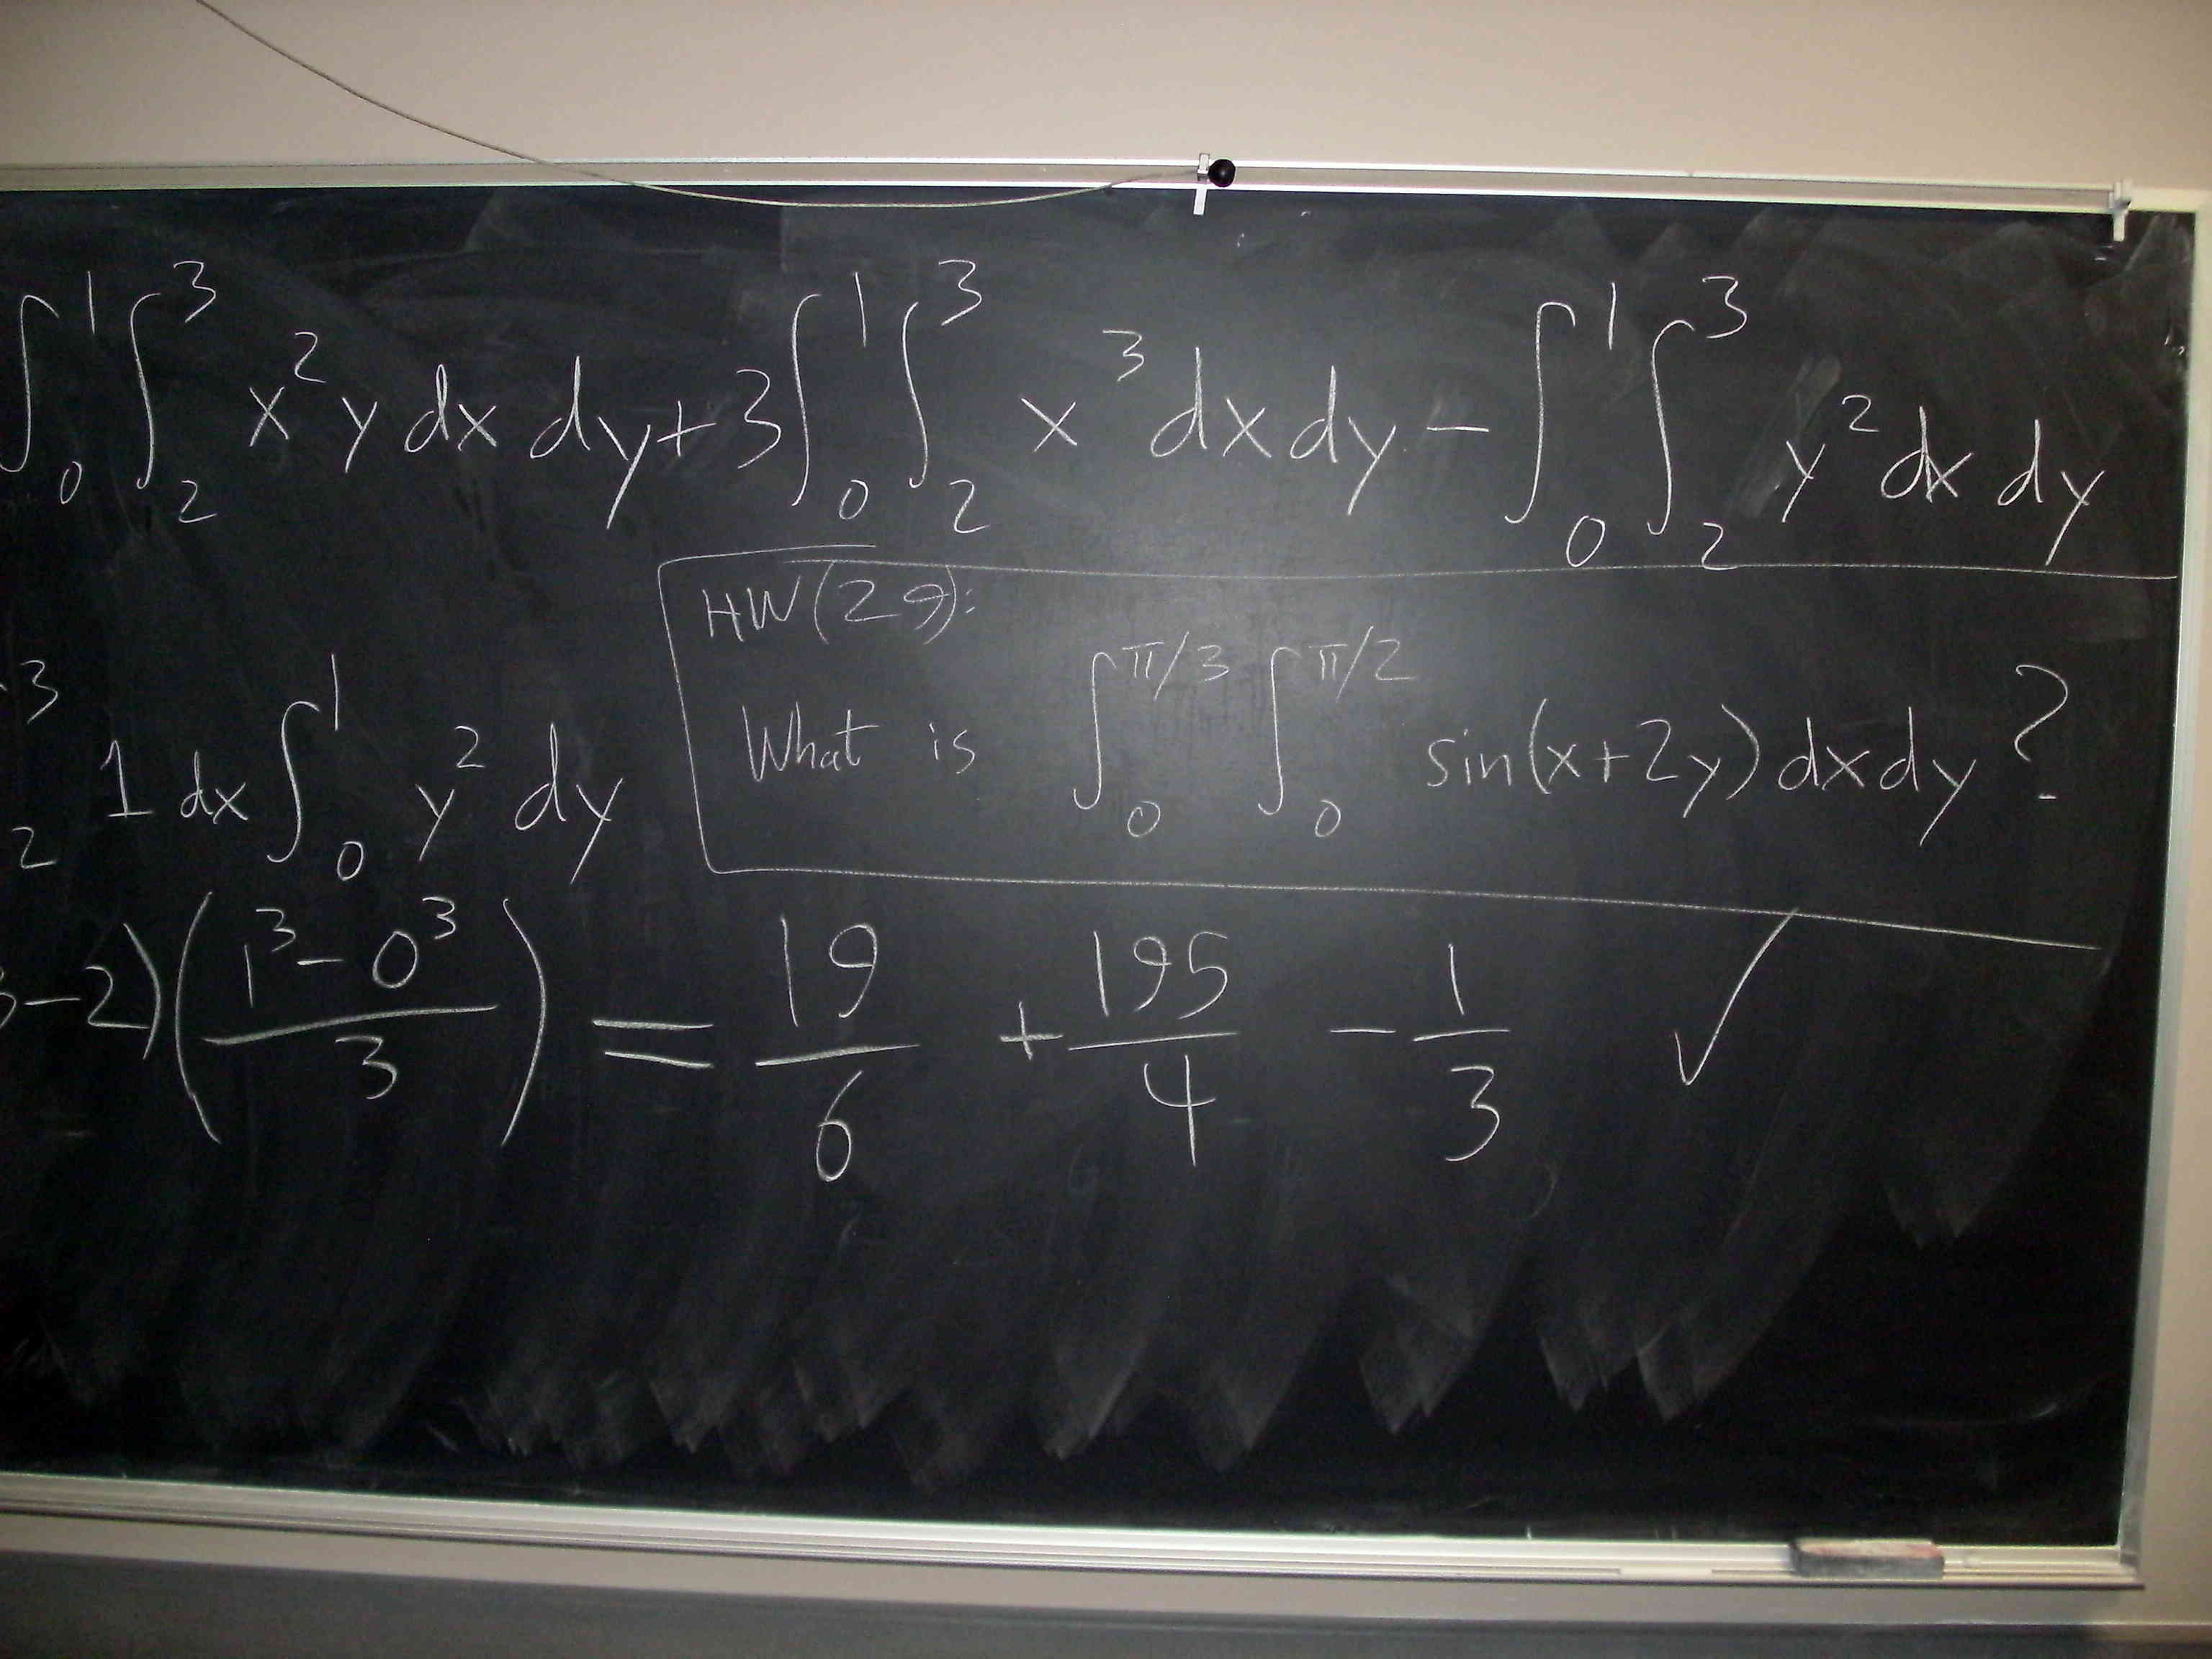 ∫₀¹∫₂³ x²y dx dy + 3∫₀¹∫₂³ x³ dx dy − ∫₀¹∫₂³ y² dx dy
HW(29):
What is ∫₀^π/3 ∫₀^π/2 sin(x+2y) dx dy ?
³₂ 1 dx ∫₀¹ y² dy
3−2)((1³−0³)/3) = 19/6 + 195/4 − 1/3 ✓